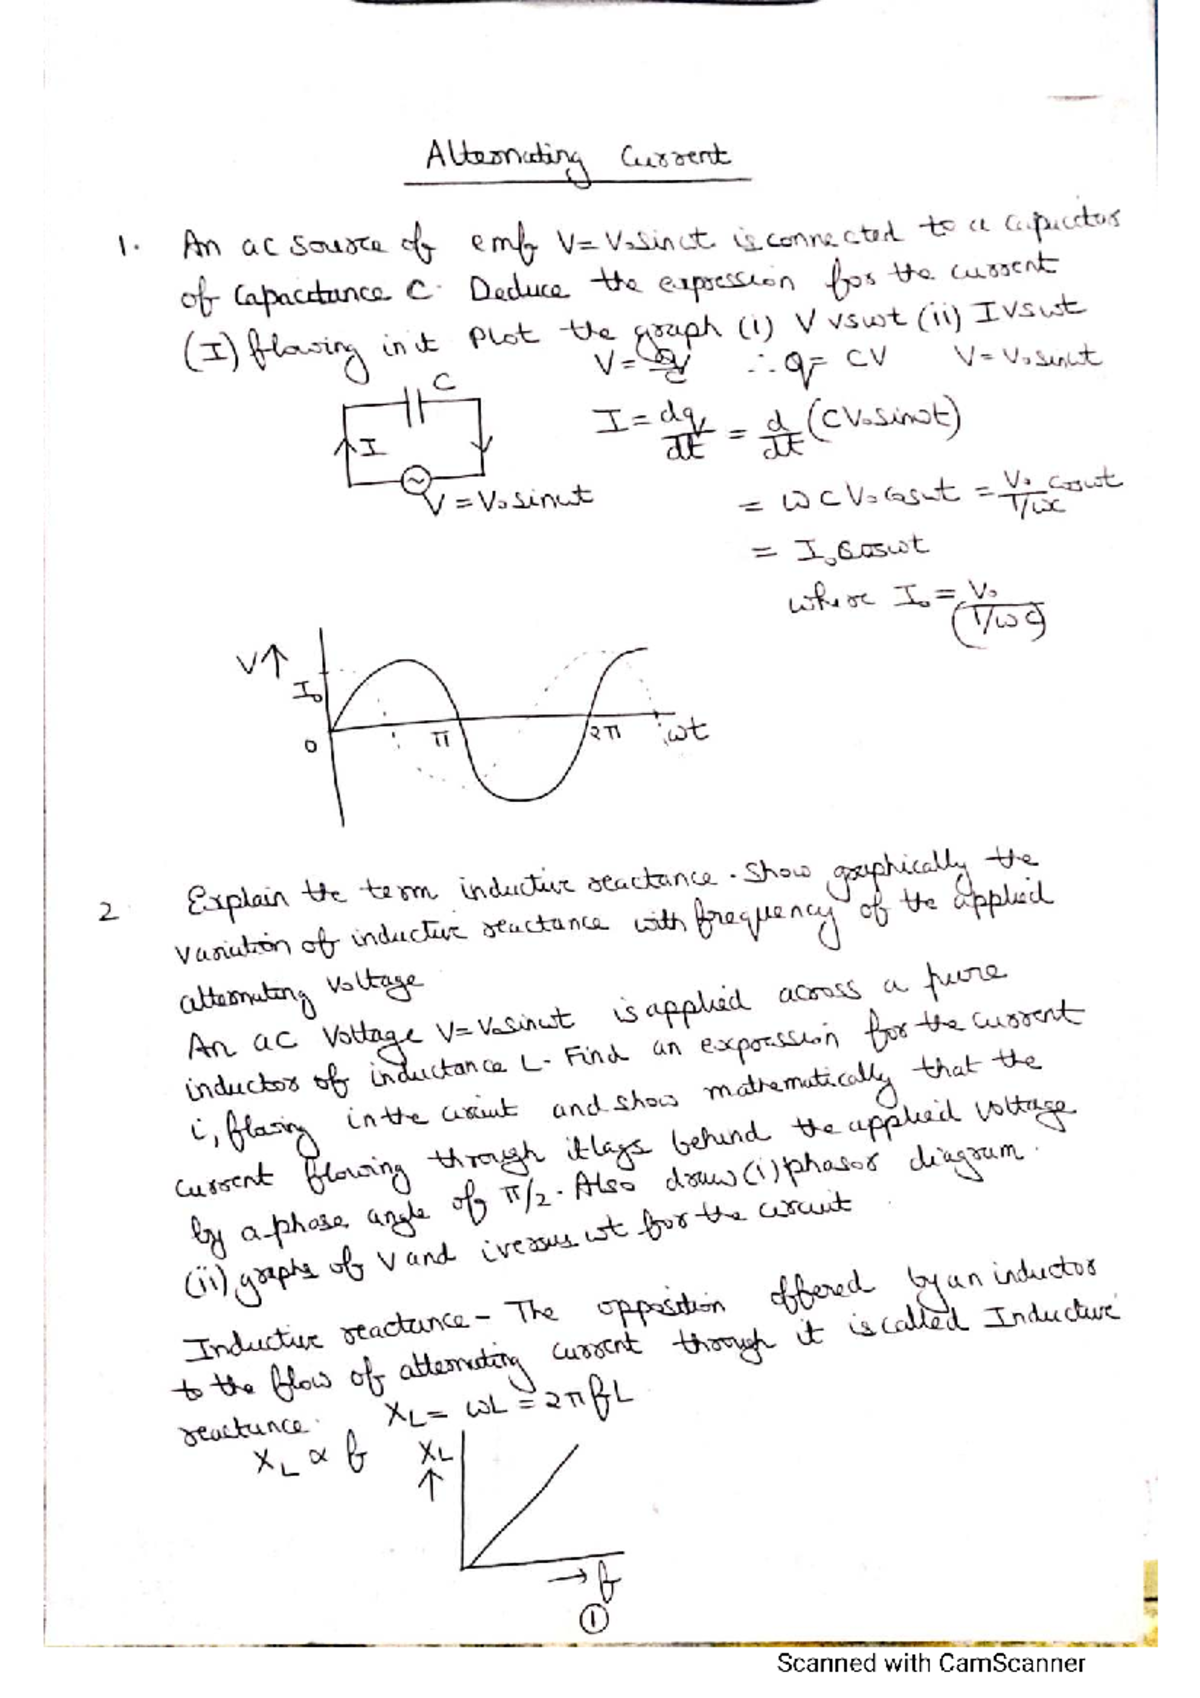 Alternating Current
1. An ac source of emf V = V₀sinωt is connected to a capacitor
of capacitance C. Deduce the expression for the current
(I) flowing in it Plot the graph (i) V vs ωt (ii) I vs ωt
V = q/C ∴ q = CV V = V₀sinωt
C
I
I = dq/dt = d/dt (CV₀sinωt)
V = V₀sinωt
= ωCV₀cosωt = V₀/(1/ωC) cosωt
= I₀cosωt
where I₀ = V₀/(1/ωC)
V↑
I₀
0 π 2π ωt
2. Explain the term inductive reactance. Show graphically the
variation of inductive reactance with frequency of the applied
alternating voltage
An ac voltage V = V₀sinωt is applied across a pure
inductor of inductance L. Find an expression for the current
i, flowing in the circuit and show mathematically that the
current flowing through it lags behind the applied voltage
by a phase angle of π/2. Also draw (i) phasor diagram.
(ii) graphs of V and i versus ωt for the circuit
Inductive reactance - The opposition offered by an inductor
to the flow of alternating current through it is called Inductive
reactance. X_L = ωL = 2πfL
X_L ∝ f X_L
↑
→ f
①
Scanned with CamScanner